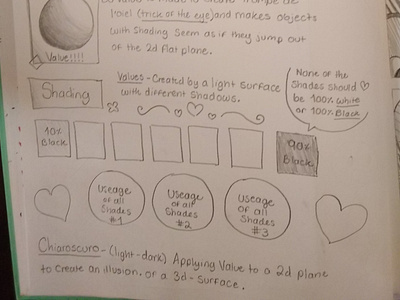 l'oiel (trick of the eye) and makes objects
with Shading seem as if they jump out
of the 2d flat plane.
Value!!!!
Shading
Values - Created by a light surface
with different shadows.
None of the
Shades should
be 100% white
or 100% Black
10%
Black
90%
Black
Useage
of all
Shades
#1
Useage
of all
Shades
#2
Useage
of all
Shades
#3
Chiaroscuro - (light-dark) Applying Value to a 2d plane
to create an illusion. or a 3d - Surface.